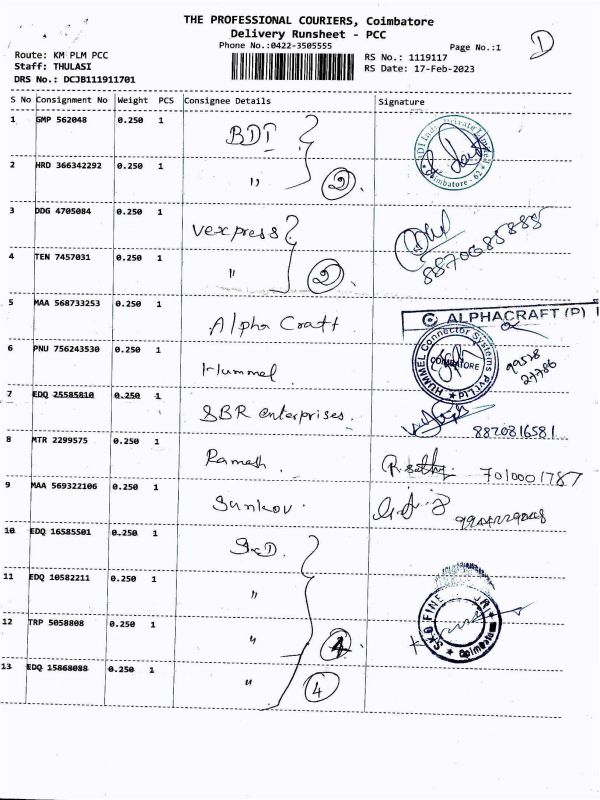 THE PROFESSIONAL COURIERS, Coimbatore
Delivery Runsheet - PCC
Phone No.:0422-3505555
Page No.:1
Route: KM PLM PCC
Staff: THULASI
DRS No.: DCJB111911701
RS No.: 1119117
RS Date: 17-Feb-2023
S No Consignment No Weight PCS Consignee Details Signature
1 GMP 562048 0.250 1 BDI
2 HRD 366342292 0.250 1 " 2.
3 DDG 4705084 0.250 1 vexpress
4 TEN 7457031 0.250 1 " 2.
5 MAA 568733253 0.250 1 Alpha Craft
ALPHACRAFT (P)
6 PNU 756243530 0.250 1 Hummel
HUMMEL Connector Systems Pvt Ltd
COIMBATORE
7 EDQ 25585810 0.250 1 SBR enterprises. 8870816581
8 MTR 2299575 0.250 1 Ramesh. 7010001787
9 MAA 569322106 0.250 1
10 EDQ 16585501 0.250 1
11 EDQ 10582211 0.250 1 "
12 TRP 5058808 0.250 1 "
SKD FINE
Coimbatore
13 EDQ 15868088 0.250 1 " 4